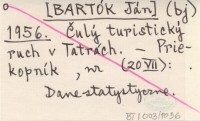 [BARTÓK Ján] (bj)
1956. Čulý turistický
ruch v Tatrách. – Prie-
kopník, nr (20 VII):
Dane statystyczne.
BT 1003/1036